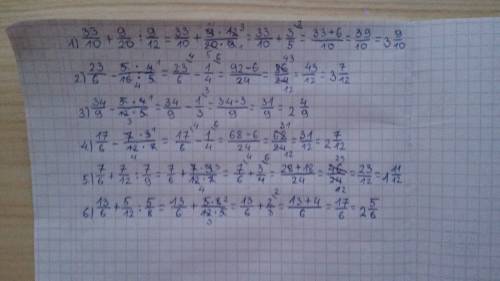 1) 33/10 + 9/20 : 9/12 = 33/10 + 9·12³/20·9₅ = 33/10 + 3/5² = 33+6/10 = 39/10 = 3 9/10
2) 23/6 - 5·4¹/16·5₄ = 23⁴/6 - 1⁶/4 = 92-6/24 = 86⁴³/24₁₂ = 43/12 = 3 7/12
3) 34/9 - 5·4¹/12·5₃ = 34/9 - 1³/3 = 34-3/9 = 31/9 = 2 4/9
4) 17/6 - 7·3¹/12·7₄ = 17⁴/6 - 1⁶/4 = 68-6/24 = 68³¹/24₁₂ = 31/12 = 2 7/12
5) 7/6 + 7/12 : 7/9 = 7/6 + 7·9³/12·7₄ = 7⁴/6 + 3⁶/4 = 28+18/24 = 46²³/24₁₂ = 23/12 = 1 11/12
6) 13/6 + 5/12 : 5/8 = 13/6 + 5·8²/12·5₃ = 13/6 + 2²/3 = 13+4/6 = 17/6 = 2 5/6